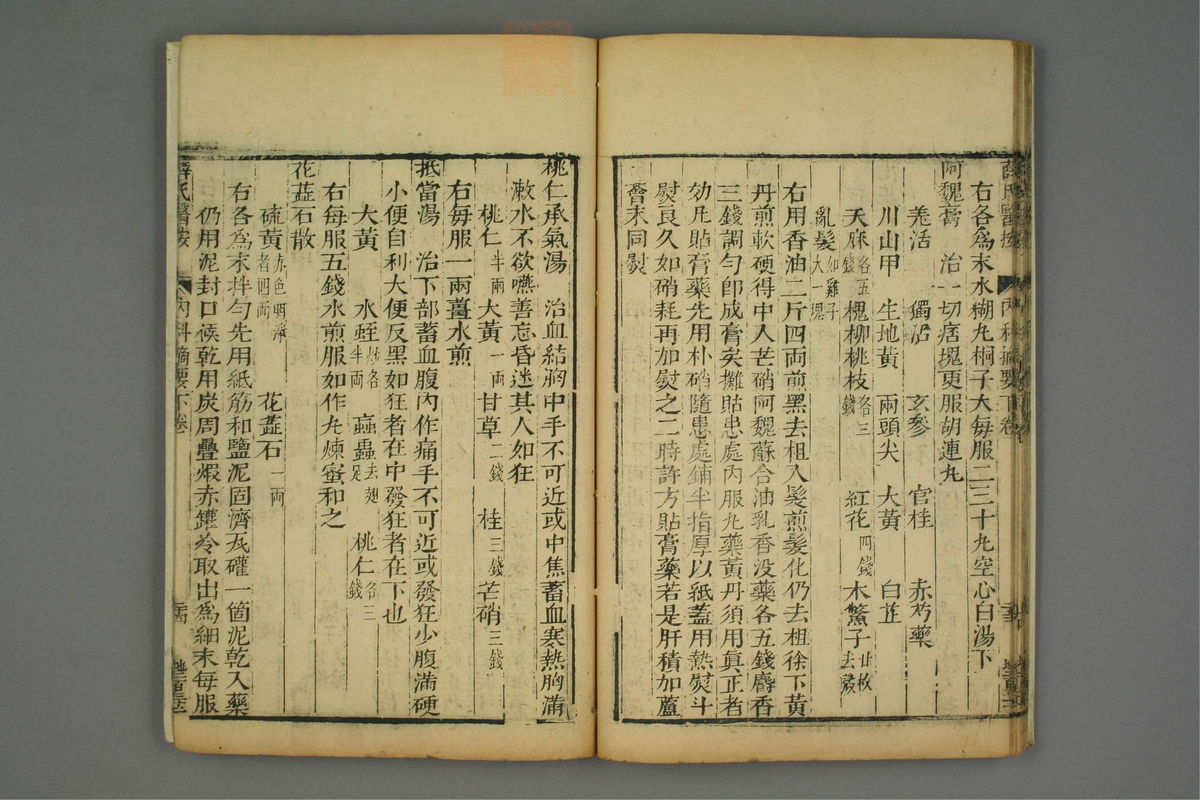 右各爲末水糊丸桐子大每服二三十丸空心白湯下
阿魏膏　治一切痞塊更服胡連丸
羗活　獨活　玄參　官桂　赤芍藥
川山甲　生地黄　兩頭尖　大黄　白芷
天麻各五錢　槐柳桃枝各三錢　紅花四錢　木鱉子廿枚去殼
亂髮如雞子大一塊
右用香油二斤四兩煎黑去柤入髮煎髮化仍去柤徐下黄
丹煎軟硬得中入芒硝阿魏蘇合油乳香没藥各五錢麝香
三錢調勻卽成膏矣攤貼患處内服丸藥黄丹須用眞正者
効凡貼膏藥先用朴硝隨患處鋪半指厚以紙蓋用熱熨斗
熨良久如硝耗再加熨之二時許方貼膏藥若是肝積加蘆
薈末同熨
桃仁承氣湯　治血結胸中手不可近或中焦蓄血寒熱胸滿
漱水不欲嚥善忘昏迷其人如狂
桃仁半兩　大黄一兩　甘草二錢　桂三錢　芒硝三錢
右每服一兩薑水煎
抵當湯　治下部蓄血腹内作痛手不可近或發狂少腹滿硬
小便自利大便反黑如狂者在中發狂者在下也
大黄　水蛭炒各半兩　䖟蟲去翅足　桃仁各三錢
右每服五錢水煎服如作丸煉蜜和之
花蕋石散
硫黄赤色明淨者四兩　花蕋石一兩
右各爲末拌勻先用紙筋和鹽泥固濟瓦罐一箇泥乾入藥
仍用泥封口候乾用炭周疊煆赤罐冷取出爲細末每服
薛氏醫按　内科摘要下卷